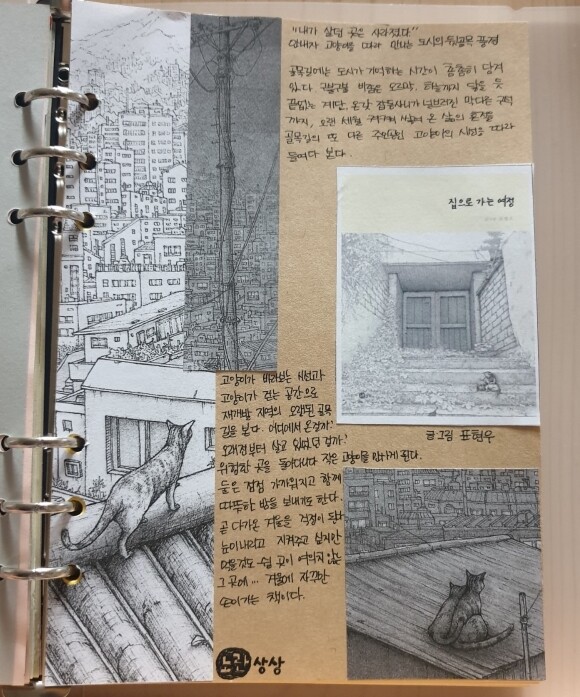 "내가 살던 곳은 사라졌다"
고양이를 따라 만나는 도시의 뒷골목 풍경
골목길에는 도시가 기억하는 시간이 촘촘히 담겨
있다 구불구불 비좁은 오르막, 하늘까지 닿을 듯
끝없는 계단, 온갖 잡동사니가 널브러진 막다른 구석
까지, 오랜 세월 켜켜이 쌓여 온 삶의 흔적을
골목길의 또 다른 주인공인 고양이의 시선을 따라
들여다 본다.
집으로 가는 여정
글·그림 표현우
고양이가 바라보는 시선과
고양이가 걷는 공간으로
재개발 지역의 오래된 골목
길을 본다. 어디에서 온걸까?
오래전부터 살고 있었던 걸까?
위험한 곳을 돌아다니다 작은 고양이를 만나게 된다.
둘은 점점 가까워지고 함께
따뜻한 밤을 보내기도 한다.
곧 다가온 겨울을 걱정이 된다
눈이내리고 지켜주고 싶지만
먹을것도 쉴 곳이 여의치 않은
그 곳에... 겨울에
책이다.
노란상상